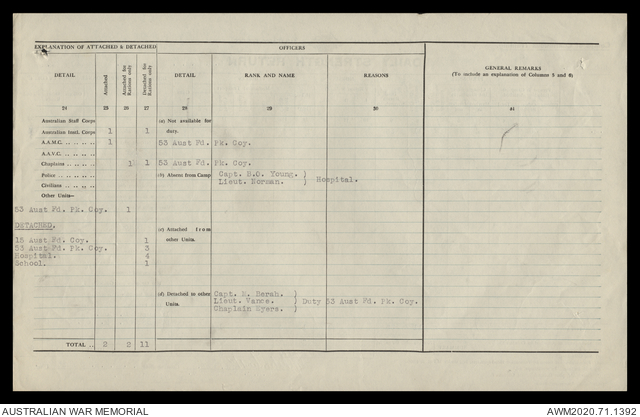 EXPLANATION OF ATTACHED & DETACHED
OFFICERS
GENERAL REMARKS
(To include an explanation of Columns 5 and 6)
DETAIL
Attached
Attached for Rations only
Detached for Rations only
DETAIL
RANK AND NAME
REASONS
24 25 26 27 28 29 30 31
Australian Staff Corps
(a) Not available for duty.
Australian Instl. Corps 1 1
A.A.M.C. .. .. .. .. 1 53 Aust Fd. Pk. Coy.
A.A.V.C. .. .. .. ..
Chaplains .. .. .. .. 1 1 53 Aust Fd. Pk. Coy.
Police .. .. .. .. .. (b) Absent from Camp Capt. B.O. Young. )
Civilians .. .. .. .. Lieut. Norman. ) Hospital.
Other Units—
53 Aust Fd. Pk. Coy. 1
DETACHED.
(c) Attached from other Units.
15 Aust Fd. Coy. 1
53 Aust Fd. Pk. Coy. 3
Hospital. 4
School. 1
(d) Detached to other Units.
Capt. R. Berah. )
Lieut. Vance. ) Duty 53 Aust Fd. Pk. Coy.
Chaplain Myers. )
TOTAL .. 2 2 11
AUSTRALIAN WAR MEMORIAL
AWM2020.71.1392